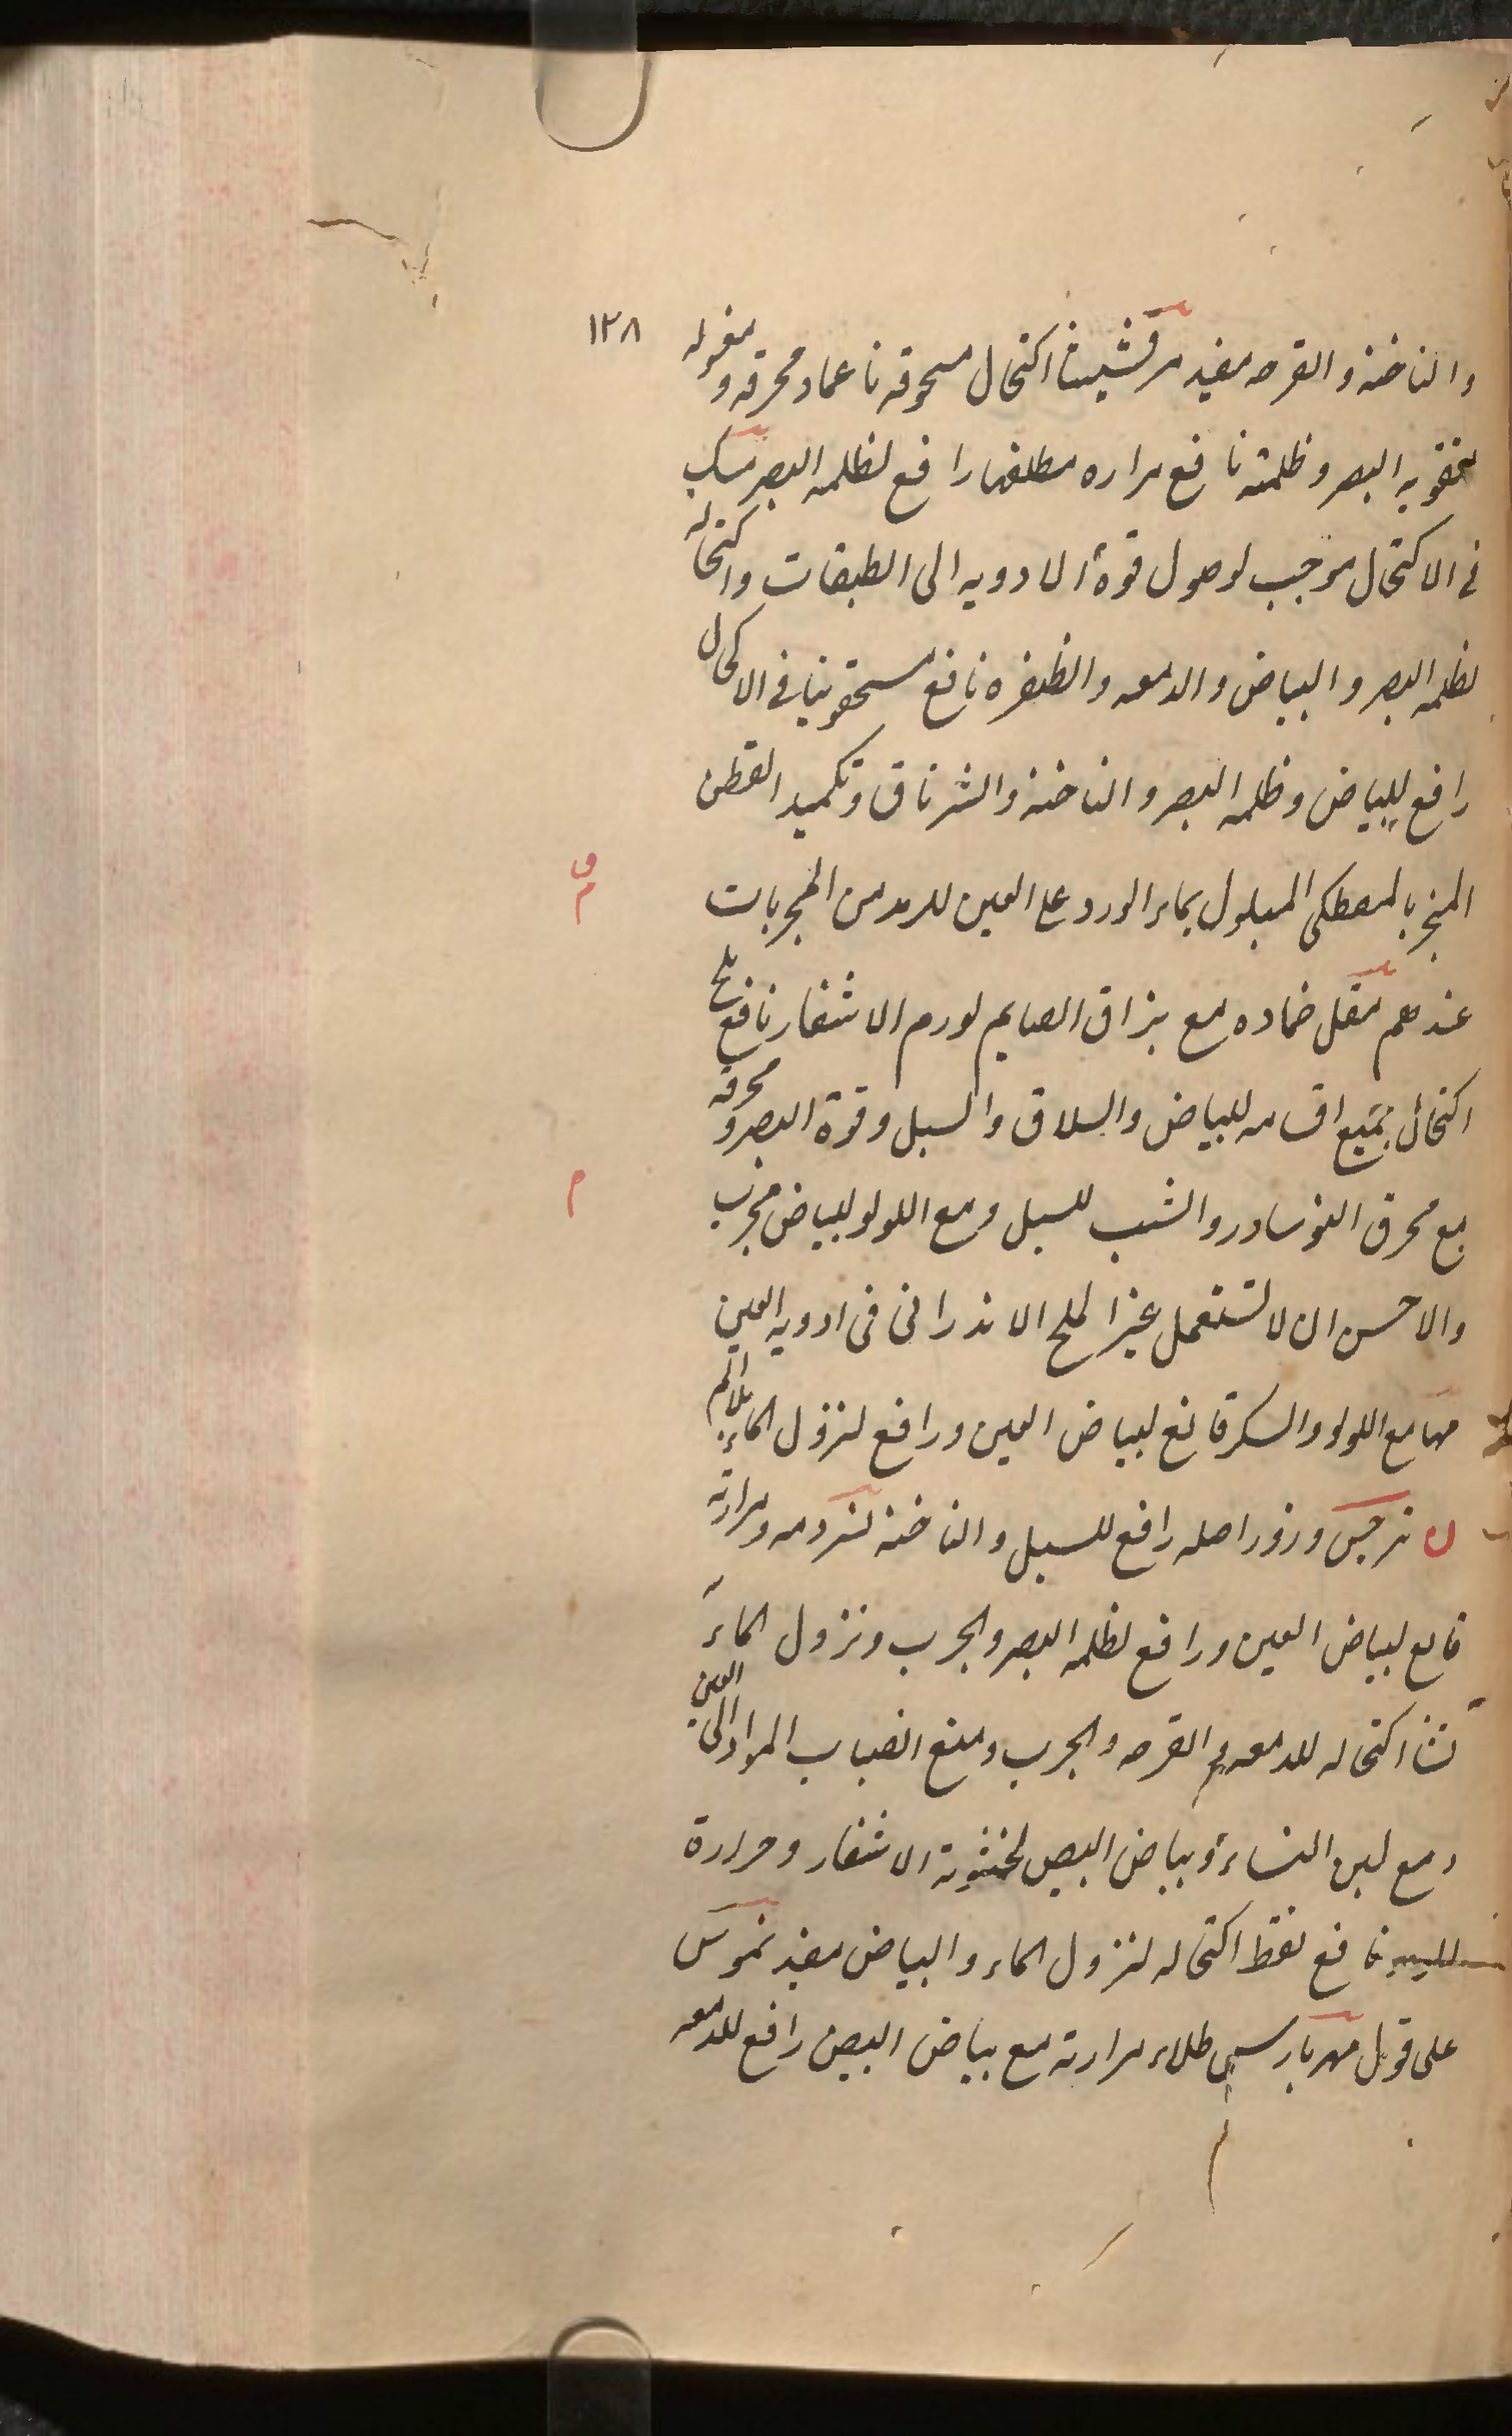 ١٢٨
والناخنه والقرحه مفيد مرقشيثا اكتحال مسحوقه ناعما ومحرقه ومغسوله
لتقويه البصر وظلمته نافع مراره مطلقها رافع لظلمه البصر مسك
فى الاكتحال موجب لوصول قوة الادويه الى الطبقات واكتحاله
لظلمه البصر والبياض والدمعه والظفره نافع مسحقونيا فى الاكحال
رافع للبياض وظلمه البصر والناخنه والشرناق وتكميد القطن
المبخر بالمصطكى المبلول بماء الورد على العين للرمد من المجربات
عندهم مقل ضماده مع بزاق الصايم لورم الاشفار نافع ملح
اكتحال جميع اقسامه للبياض والسلاق والسبل وقوة البصر ومحرقه
مع محرق النوسادر والشب للسبل ومع اللولو للبياض مجرب
م
والاحسن ان لا تستعمل غير الملح الاندرانى فى ادويه العين
مها مع اللولو والسكر قالع لبياض العين ورافع لنزول الماء
ن نرجس وزور اصله رافع للسبل والناخنه نسر دمه ومرارته
قالع لبياض العين ورافع لظلمه البصر والجرب ونزول الماء
نشا اكتحاله للدمعه والقرحه والجرب ومنع انصباب المواد الى العين
ومع لبن النساء وبياض البيض لخشونة الاشفار وحرارة
نافع نفط اكتحاله لنزول الماء والبياض مفيد نموس
على قول مهريارسى طلاء مرارته مع بياض البيض رافع للدمعه